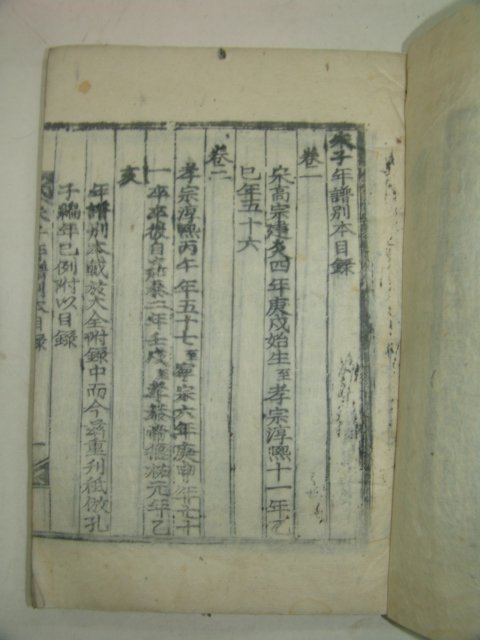 朱子年譜別本目錄
卷一
宋高宗建炎四年庚戌始生至孝宗淳熙十一年乙
巳年五十六
卷二
孝宗淳熙丙午年五十七至寧宗六年庚申年七十
一卒卒後自嘉泰二年壬戌至李恭常德祐元年乙
亥
年譜別本載於大全附錄中而今爲重刊秪倣孔
子編年已例附以目錄
朱子年譜別本目錄 一